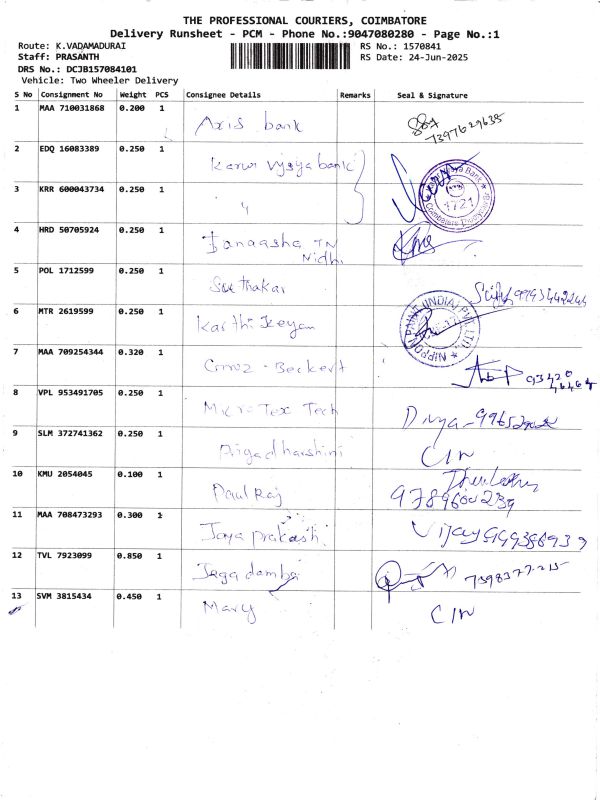 THE PROFESSIONAL COURIERS, COIMBATORE
Delivery Runsheet - PCM - Phone No.:9047080280 - Page No.:1
Route: K.VADAMADURAI RS No.: 1570841
Staff: PRASANTH RS Date: 24-Jun-2025
DRS No.: DCJB157084101
Vehicle: Two Wheeler Delivery
S No Consignment No Weight PCS Consignee Details Remarks Seal & Signature
1 MAA 710031868 0.200 1 Axis bank 7397629635
2 EDQ 16083389 0.250 1 Karur Vysya bank
3 KRR 600043734 0.250 1 "
4 HRD 50705924 0.250 1 TN Nidhi
5 POL 1712599 0.250 1 Suthakar
6 MTR 2619599 0.250 1 Karthikeyan NIPPON PAINT (INDIA) PVT. LTD.
7 MAA 709254344 0.320 1
8 VPL 953491705 0.250 1 Micro Tex Tech Divya
9 SLM 372741362 0.250 1 C/N
10 KMU 2054045 0.100 1 Paul Raj 9789600239
11 MAA 708473293 0.300 1 Jaya prakash Vijay
12 TVL 7923099 0.850 1 Jagadamba
13 SVM 3815434 0.450 1 Mary C/N